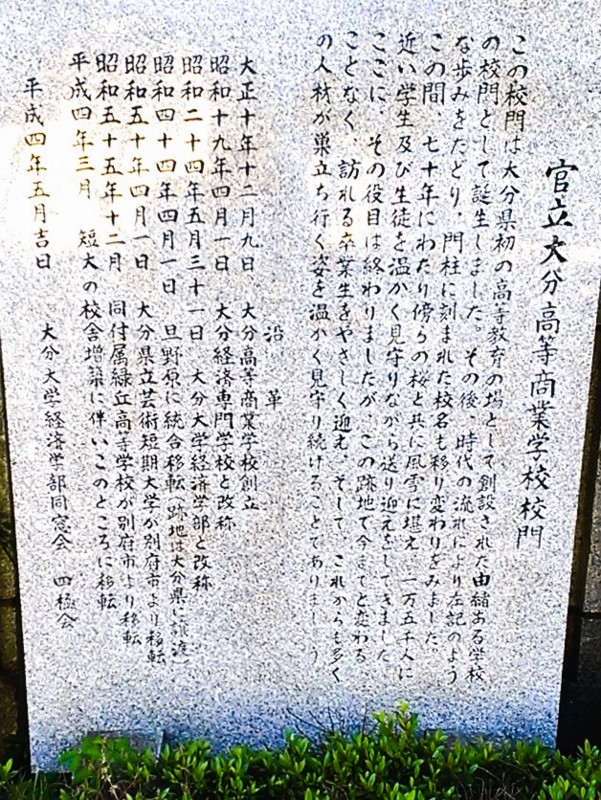 官立大分高等商業学校校門
この校門は大分県初の高等教育の場として創設された由緒ある学校
の校門として誕生しました。その後、時代の流れにより左記のよう
な歩みをたどり、門柱に刻まれた校名も移り変わりをみました。
この間、七十年にわたり傍らの桜と共に風雪に堪え、一万五千人に
近い学生及び生徒を温かく見守りながら送り迎えをしてきました。
ここに、その役目は終わりましたが、この跡地で今までと変わる
ことなく、訪れる卒業生をやさしく迎え、そして、これからも多く
の人材が巣立ち行く姿を温かく見守り続けることでありましょう。
沿革
大正十年十二月九日 大分高等商業学校創立
昭和十九年四月一日 大分経済専門学校と改称
昭和二十四年五月三十一日 大分大学経済学部と改称
昭和四十四年四月一日 旦野原に統合移転(跡地は大分県に譲渡)
昭和五十年四月一日 大分県立芸術短期大学が別府市より移転
昭和五十五年十二月 同付属緑丘高等学校が別府市より移転
平成四年三月 短大の校舎増築に伴いこのところに移転
平成四年五月吉日
大分大学経済学部同窓会 四極会